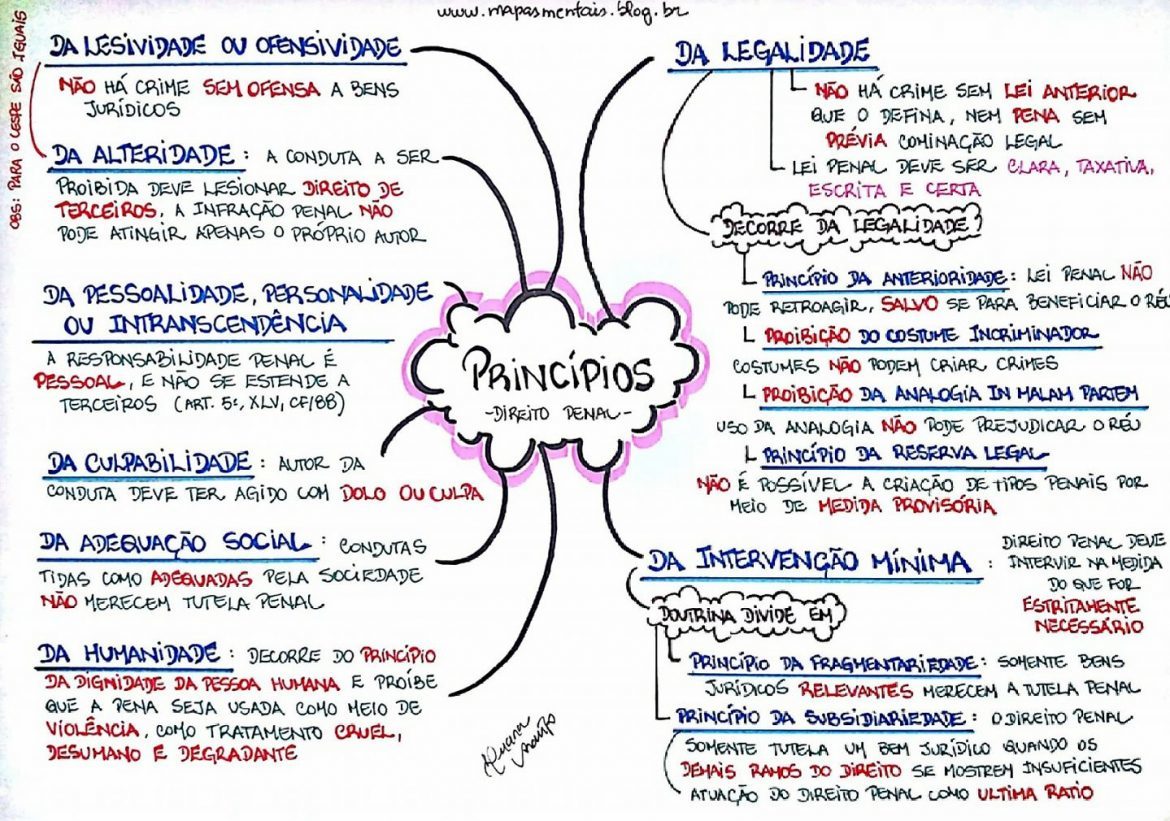 www.mapasmentais.blog.br
OBS: PARA O CESPE SÃO IGUAIS
DA LESIVIDADE OU OFENSIVIDADE
NÃO HÁ CRIME SEM OFENSA A BENS
JURÍDICOS
DA ALTERIDADE: A CONDUTA A SER
PROIBIDA DEVE LESIONAR DIREITO DE
TERCEIROS, A INFRAÇÃO PENAL NÃO
PODE ATINGIR APENAS O PRÓPRIO AUTOR
DA PESSOALIDADE, PERSONALIDADE
OU INTRANSCENDÊNCIA
A RESPONSABILIDADE PENAL É
PESSOAL, E NÃO SE ESTENDE A
TERCEIROS (ART. 5º, XLV, CF/88)
DA CULPABILIDADE: AUTOR DA
CONDUTA DEVE TER AGIDO COM DOLO OU CULPA
DA ADEQUAÇÃO SOCIAL: CONDUTAS
TIDAS COMO ADEQUADAS PELA SOCIEDADE
NÃO MERECEM TUTELA PENAL
DA HUMANIDADE: DECORRE DO PRINCÍPIO
DA DIGNIDADE DA PESSOA HUMANA E PROÍBE
QUE A PENA SEJA USADA COMO MEIO DE
VIOLÊNCIA, COMO TRATAMENTO CRUEL,
DESUMANO E DEGRADANTE
PRINCÍPIOS
-DIREITO PENAL-
DA LEGALIDADE
NÃO HÁ CRIME SEM LEI ANTERIOR
QUE O DEFINA, NEM PENA SEM
PRÉVIA COMINAÇÃO LEGAL
LEI PENAL DEVE SER CLARA, TAXATIVA,
ESCRITA E CERTA
DECORRE DA LEGALIDADE:
PRINCÍPIO DA ANTERIORIDADE: LEI PENAL NÃO
PODE RETROAGIR, SALVO SE PARA BENEFICIAR O RÉU
PROIBIÇÃO DO COSTUME INCRIMINADOR
COSTUMES NÃO PODEM CRIAR CRIMES
PROIBIÇÃO DA ANALOGIA IN MALAM PARTEM
USO DA ANALOGIA NÃO PODE PREJUDICAR O RÉU
PRINCÍPIO DA RESERVA LEGAL
NÃO É POSSÍVEL A CRIAÇÃO DE TIPOS PENAIS POR
MEIO DE MEDIDA PROVISÓRIA
DA INTERVENÇÃO MÍNIMA: DIREITO PENAL DEVE
INTERVIR NA MEDIDA
DO QUE FOR
ESTRITAMENTE
NECESSÁRIO
DOUTRINA DIVIDE EM
PRINCÍPIO DA FRAGMENTARIEDADE: SOMENTE BENS
JURÍDICOS RELEVANTES MERECEM A TUTELA PENAL
PRINCÍPIO DA SUBSIDIARIEDADE: O DIREITO PENAL
SOMENTE TUTELA UM BEM JURÍDICO QUANDO OS
DEMAIS RAMOS DO DIREITO SE MOSTREM INSUFICIENTES
ATUAÇÃO DO DIREITO PENAL COMO ULTIMA RATIO